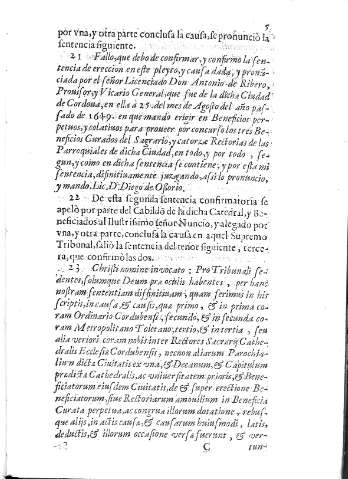 5.
por vna, y otra parte conclusa la causa, se pronunciò la
sentencia siguiente.
21 Fallo, que debo de confirmar, y confirmo la sen-
tencia de ereccion en este pleyto, y causa dada, y pronũ-
ciada por el señor Licenciado Don Antonio de Ribero,
Prouisor, y Vicario General, que fue de la dicha Ciudad
de Cordoua, en ella à 25. del mes de Agosto del año pas-
sado de 1649. en que mando erigir en Beneficios per-
petuos, y colatiuos para proueer por concurso los tres Be-
neficios Curados del Sagrario, y catorze Rectorias de las
Parroquiales de dicha Ciudad, en todo, y por todo, se-
gun, y como en dicha sentencia se contiene, y por esta mi
sentencia, difinitiuamente juzgando, assi lo pronuncio,
y mando. Lic. D. Diego de Ossorio.
22 De esta segunda sentencia confirmatoria se
apelò por parte del Cabildo de la dicha Catedral, y Be-
neficiados al Ilustrissimo señor Nuncio, y alegado por
vna, y otra parte, conclusa la causa en aquel Supremo
Tribunal, saliò la sentencia del señor siguiente, terce-
ra, que confirmò las dos.
23 Christi nomine inuocato: Pro Tribunali se-
dentes, solumque Deum præ oculis habentes, per hanc
nostram sententiam diffinitiuam, quam ferimus in his
scriptis, in causa, & causis, quæ primo, & in prima co-
ram Ordinario Cordubensi, secundo, & in secunda co-
ram Metropolitano Toletano, tertio, & in tertia, seu
alia veriori coram nobis inter Rectores Sacrarij Cathe-
dralis Ecclesiæ Cordubensis, necnon aliarum Parochia-
lium dictæ Ciuitatis ex vna, & Decanum, & Capitulum
prædictæ Cathedralis, ac vniuersitatem prioris, & Bene-
ficiatorum eiusdem Ciuitatis, de & super erectione Be-
neficiatorum, siue Rectoriarum amouilium in Beneficia
Curata perpetua, ac congrua illorum dotatione, rebus-
que alijs, in actis causæ, & causarum huiusmodi, latis,
deductis, & illorum occasione versa fuerunt, & ver-
C
tun-